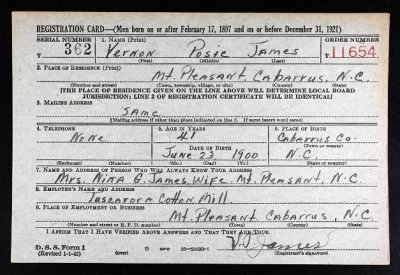 REGISTRATION CARD—(Men born on or after February 17, 1897 and on or before December 31, 1921)
SERIAL NUMBER 1. NAME (Print) ORDER NUMBER
T 362 Vernon Posie James T 11654
(First) (Middle) (Last)
2. PLACE OF RESIDENCE (Print)
Mt. Pleasant, Cabarrus, N.C.
(Number and street) (Town, township, village, or city) (County) (State)
[THE PLACE OF RESIDENCE GIVEN ON THE LINE ABOVE WILL DETERMINE LOCAL BOARD
JURISDICTION; LINE 2 OF REGISTRATION CERTIFICATE WILL BE IDENTICAL]
3. MAILING ADDRESS
Same
(Mailing address if other than place indicated on line 2. If same insert word same)
4. TELEPHONE 5. AGE IN YEARS 6. PLACE OF BIRTH
None 41 Cabarrus Co.
DATE OF BIRTH (Town or county)
June 23, 1900 N.C.
(Exchange) (Number) (Mo.) (Day) (Yr.) (State or country)
7. NAME AND ADDRESS OF PERSON WHO WILL ALWAYS KNOW YOUR ADDRESS
Mrs. Nina G. James, Wife, Mt. Pleasant, N.C.
8. EMPLOYER'S NAME AND ADDRESS
Tuscarora Cotton Mill
9. PLACE OF EMPLOYMENT OR BUSINESS
Mt. Pleasant, Cabarrus, N.C.
(Number and street or R. F. D. number) (Town) (County) (State)
I AFFIRM THAT I HAVE VERIFIED ABOVE ANSWERS AND THAT THEY ARE TRUE.
D. S. S. Form 1
(Revised 1-1-42) (over) GPO V. P. James
(Registrant's signature)